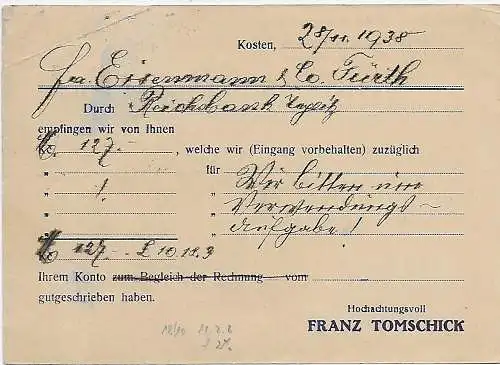 Kosten, 28/11. 1938
Fa. Eisenmann & Co. Fürth
Durch Reichsbank
empfingen wir von Ihnen
127.- , welche wir (Eingang vorbehalten) zuzüglich
" " für Wir bitten um
" ! " " Verwendungs-
" " " aufgabe!
127.- £ 10.19.3
Ihrem Konto zum Begleich der Rechnung vom
gutgeschrieben haben.
Hochachtungsvoll
FRANZ TOMSCHICK